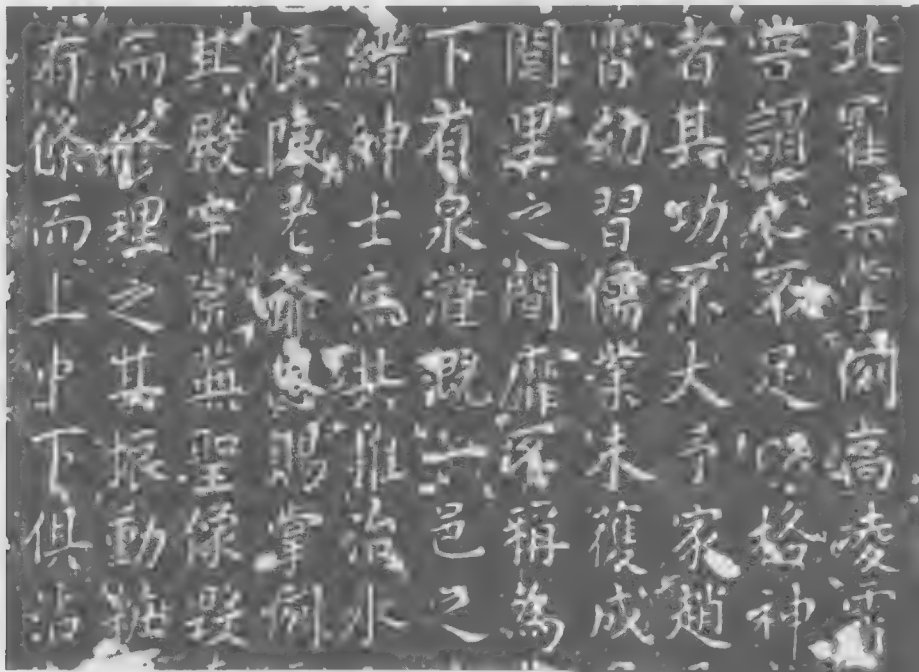 北霍渠掌例高凌霄
嘗謂不足格神
者其功不大予家趙
幼習儒業未獲成
閭之間靡不稱為
下有泉灌溉邑之
縉紳士為其難治水
侯陳老爺恩賜掌例
其殿宇荒蕪聖像毀
而修理之其振動
有條而上中下俱沾